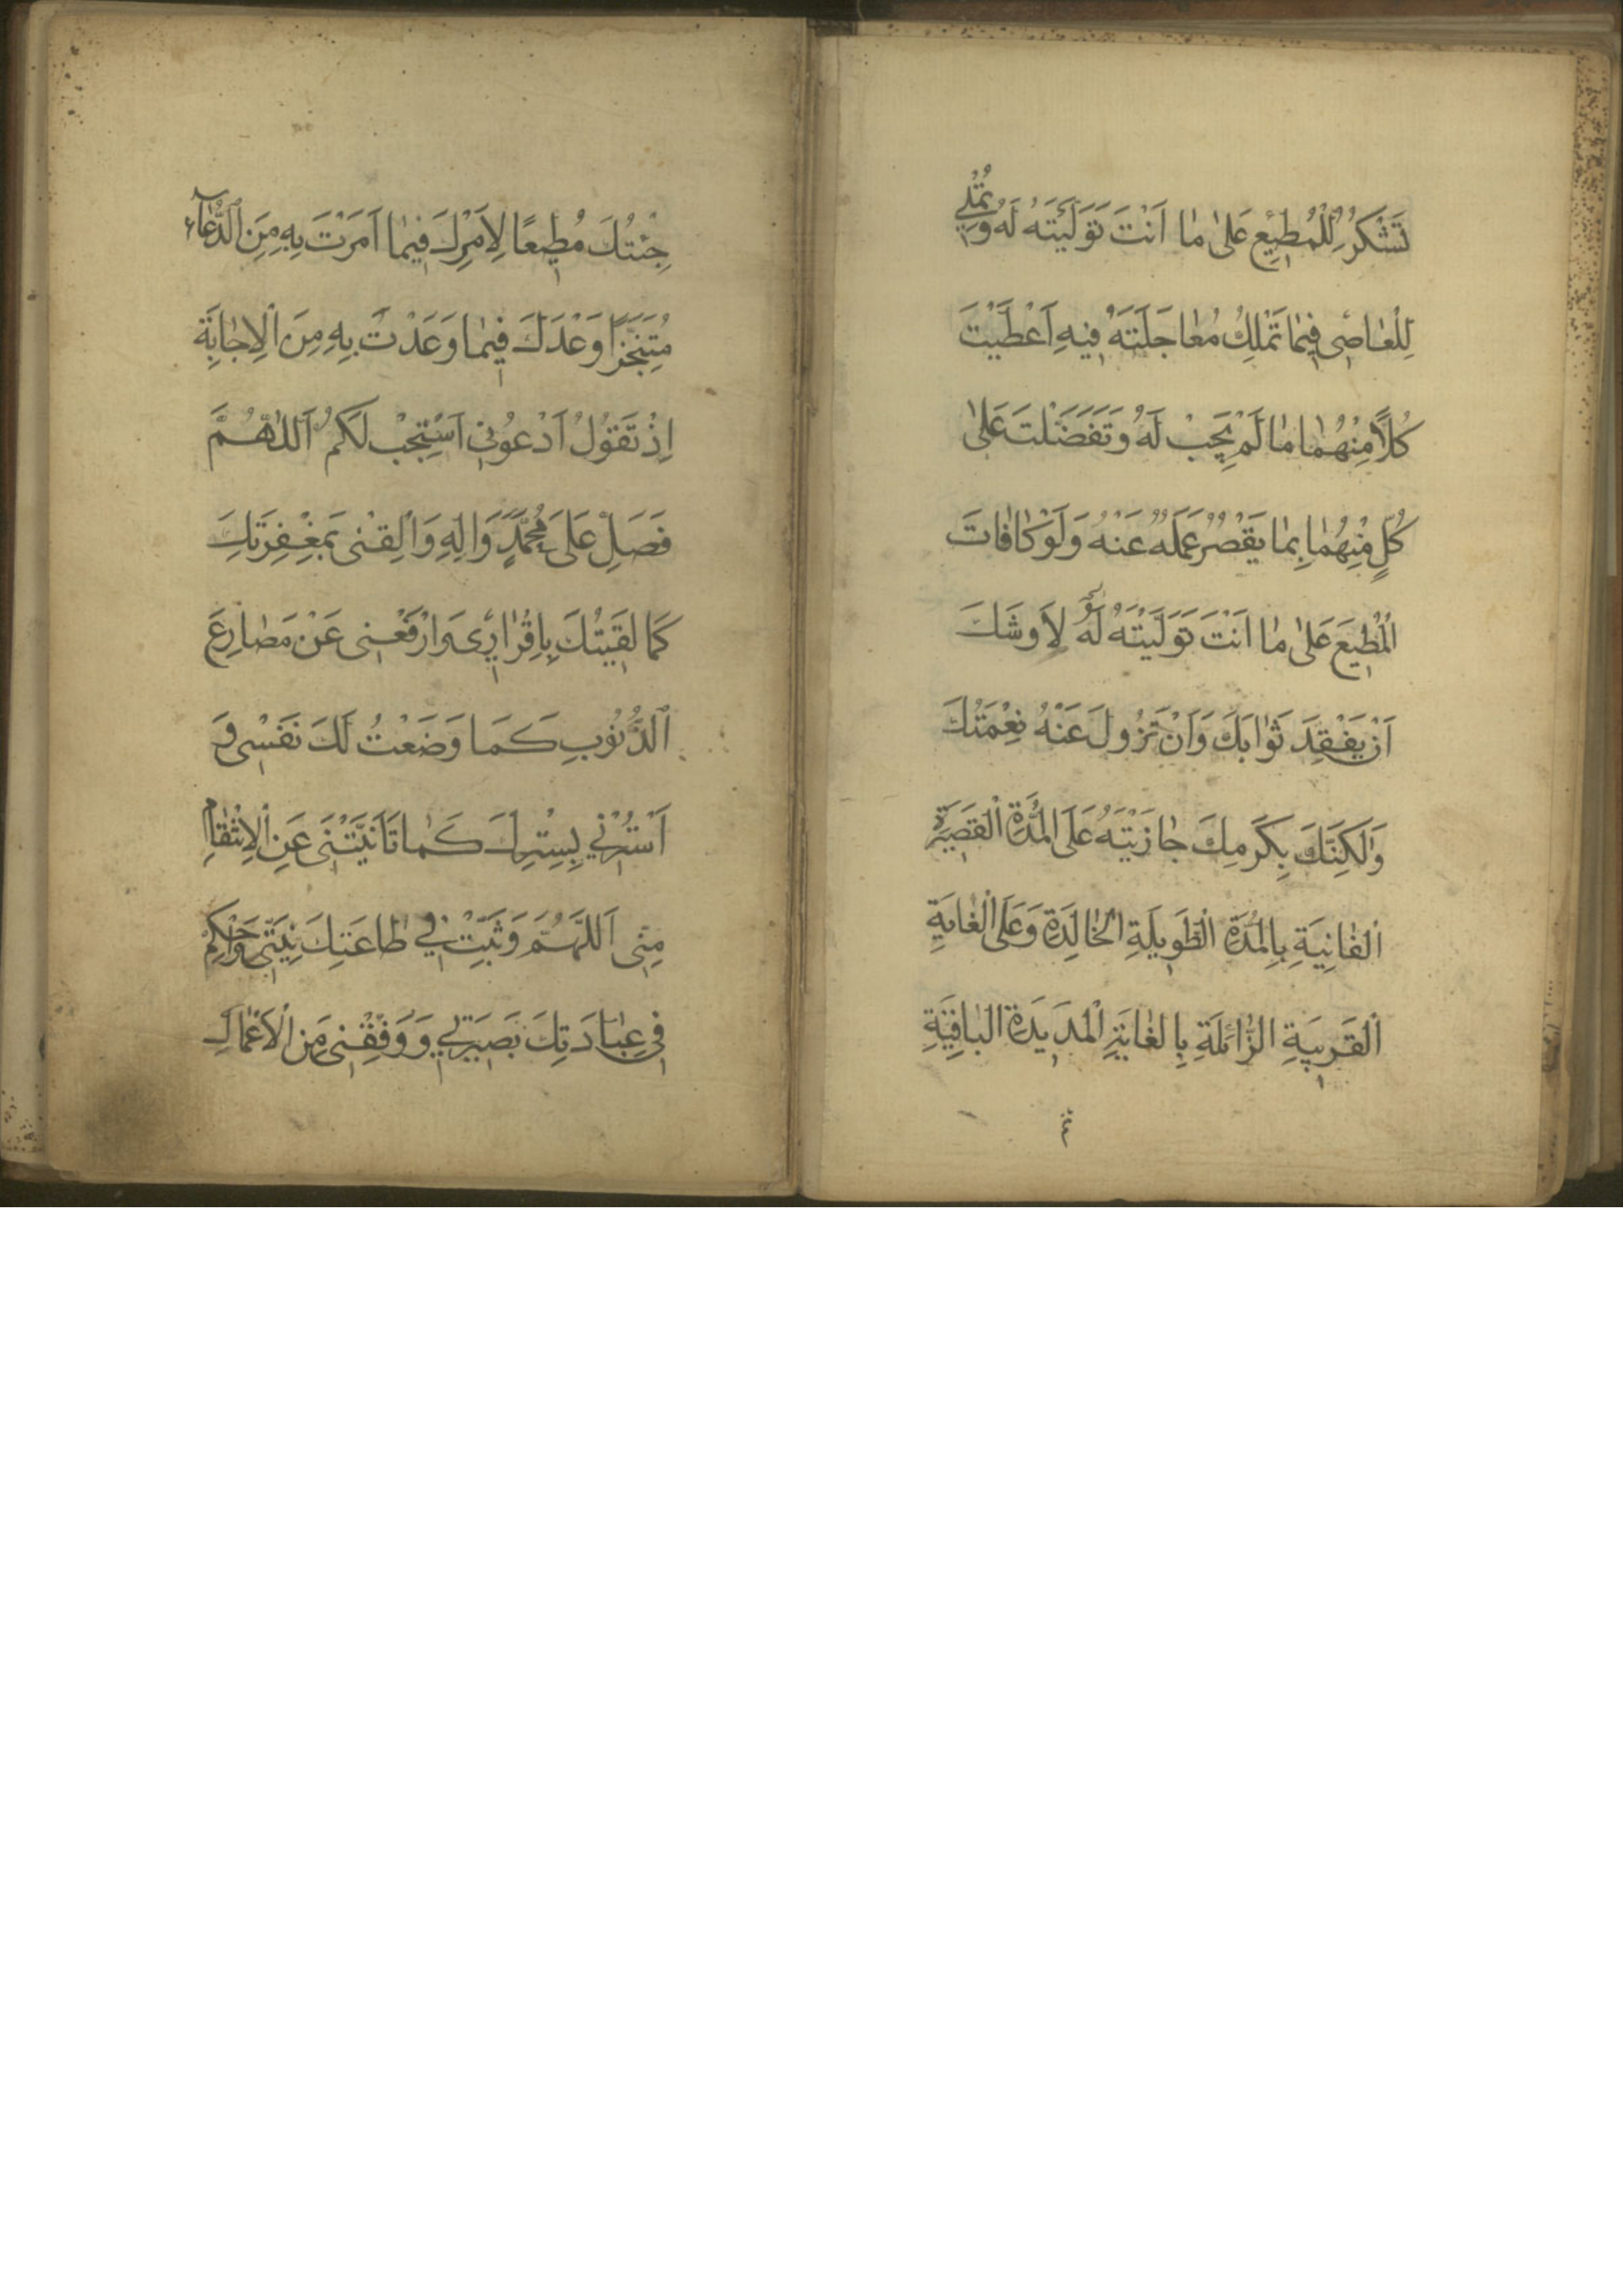 تَشْكُرُ لِلْمُطيعِ عَلىٰ مٰا اَنْتَ تَوَلَّيْتَهُ لَهُ وَتُمْلي
لِلْعٰاصى فيمٰا تَمْلِكُ مُعٰاجَلَتَهُ فيهِ اَعْطَيْتَ
كُلًّا مِنْهُمٰا مٰا لَمْ يَجِبْ لَهُ وَتَفَضَّلْتَ عَلىٰ
كُلٍّ مِنْهُمٰا بِمٰا يَقْصُرُ عَمَلُهُ عَنْهُ وَلَوْ كٰافَاتَ
الْمُطيعَ عَلىٰ مٰا اَنْتَ تَوَلَّيْتَهُ لَهُ لَاَوشَكَ
اَنْ يَفْقِدَ ثَوٰابَكَ وَاَنْ تَزُولَ عَنْهُ نِعْمَتُكَ
وَلٰكِنَّكَ بِكَرَمِكَ جٰازَيْتَهُ عَلَى الْمُدَّةِ الْقَصيرَةِ
الْفٰانِيَةِ بِالْمُدَّةِ الطَّويلَةِ الْخٰالِدَةِ وَعَلَى الْغٰايَةِ
الْقَريبَةِ الزّٰائِلَةِ بِالْغٰايَةِ الْمَديدَةِ الْبٰاقِيَةِ
ثم
جِئْتُكَ مُطيعًا لِاَمْرِكَ فيمٰا اَمَرْتَ بِهِ مِنَ الدُّعٰآءِ
مُتَنَجِّزًا وَعْدَكَ فيمٰا وَعَدْتَ بِهِ مِنَ الْاِجٰابَةِ
اِذْ تَقُولُ اَدْعُونى اَسْتَجِبْ لَكُمْ اَللّٰهُمَّ
فَصَلِّ عَلىَ مُحَمَّدٍ وَاٰلِهِ وَالْقِنى بِمَغْفِرَتِكَ
كَمٰا لَقيتُكَ بِاِقْرٰارى وَارْفَعْنى عَنْ مَصٰارِعَ
الذُّنُوبِ كَمٰا وَضَعْتُ لَكَ نَفْسى وَ
اَسْتُرْنى بِسِتْرِكَ كَمٰا تَاَنَّيْتَنى عَنِ الْاِنْتِقٰامِ
مِنّى اَللّٰهُمَّ وَثَبِّتْ في طٰاعَتِكَ نِيَّتى وَاَحْكِمْ
فى عِبٰادَتِكَ بَصيرَتي وَوَفِّقْنى مِنَ الْاَعْمٰالِ